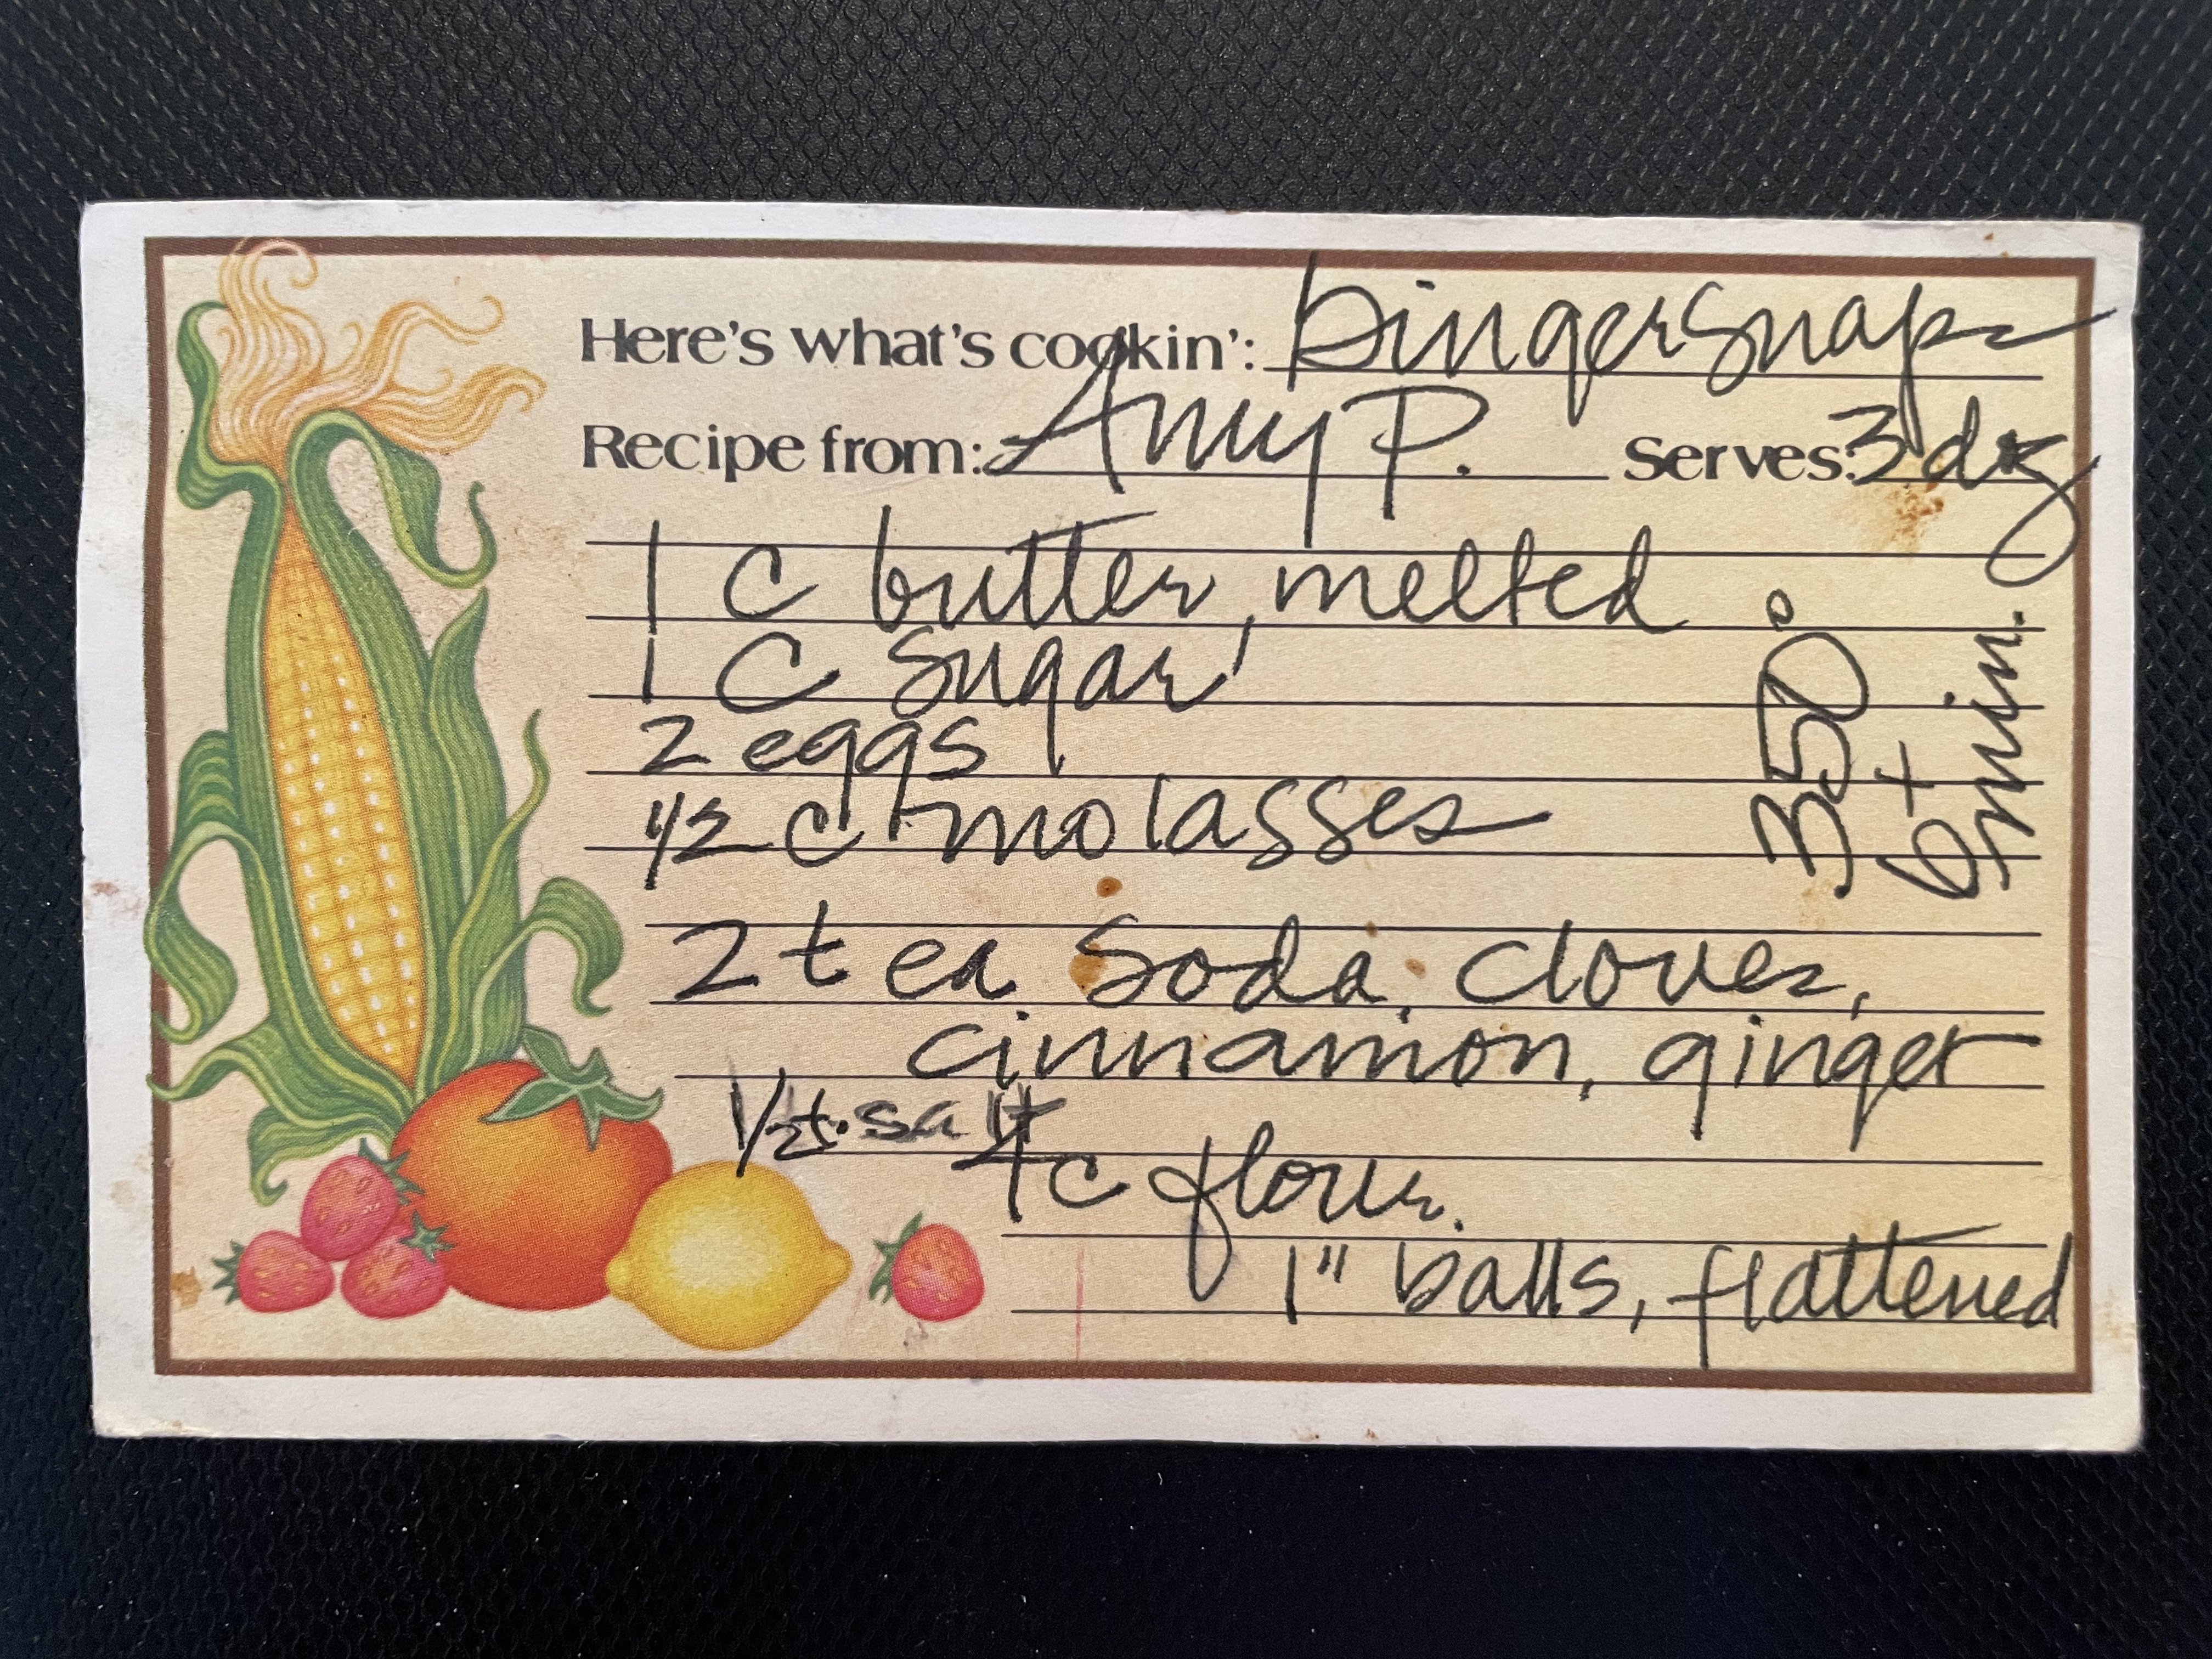 Here's what's cookin': Gingersnaps
Recipe from: Amy P. Serves: 3 doz
1 c butter, melted
1 c sugar
2 eggs
1/2 c molasses
350°
6+ min.
2 tea soda, cloves,
cinnamon, ginger
1/2 t. salt
4 c flour.
1" balls, flattened